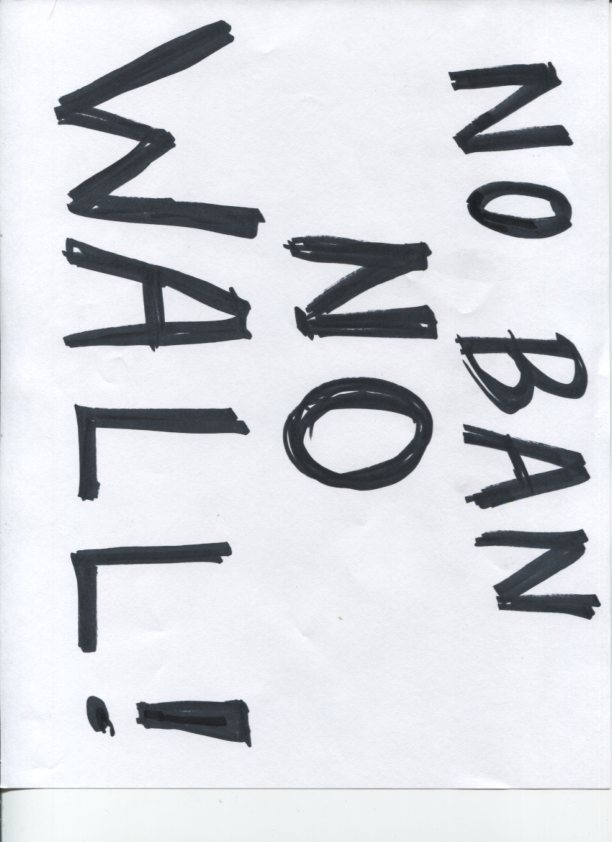 NO BAN
NO
WALL!